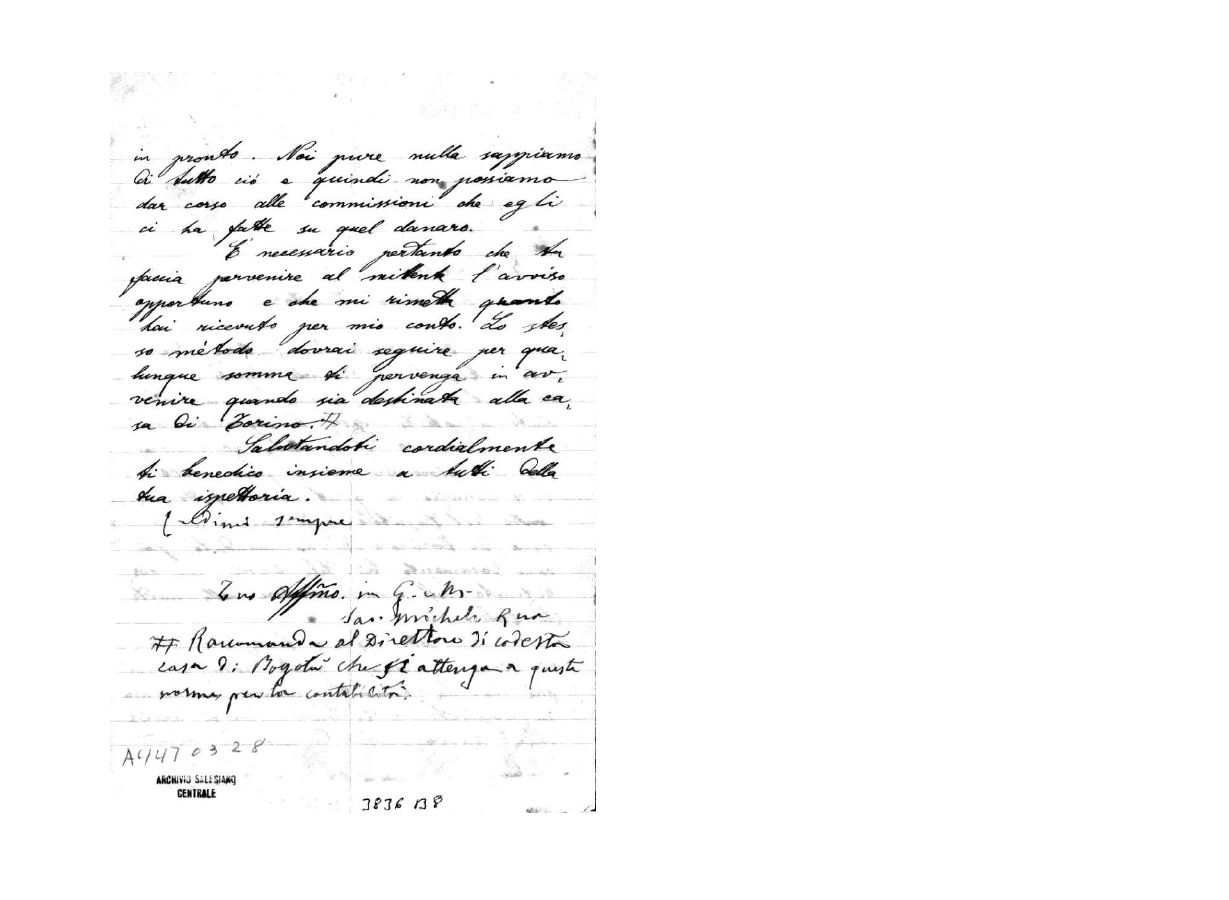 in pronto. Noi pure nulla sappiamo
di tutto ció e quindi non possiamo
dar corso alle commissioni che egli
ci ha fatte su quel danaro.
È necessario pertanto che tu
faccia pervenire al mittente l'avviso
opportuno e che mi rimetta quanto
hai ricevuto per mio conto. Lo stes,
so metodo dovrai seguire per qua,
lunque somma ti pervenga in av,
venire quando sia destinata alla ca,
sa di Torino.#
Salutandoti cordialmente
ti benedico insieme a tutti della
tua ispettoria.
Credimi sempre
Tuo Affmo. in G. e M.
Sac. Michele Rua
# Raccomanda al Direttore di codesta
casa di Bogotà che si attenga a queste
norme per la contabilità.
A4470328
ARCHIVIO SALESIANO
CENTRALE
3836 B8